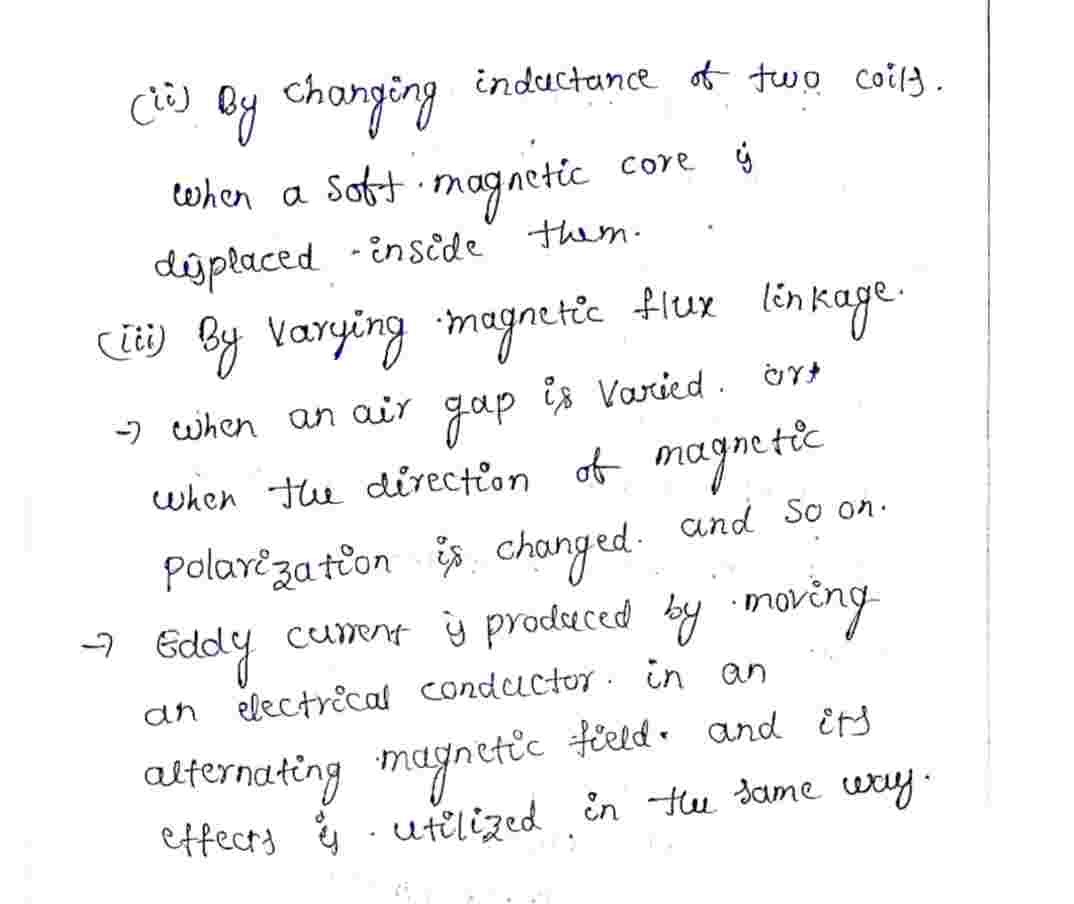 (ii) By changing inductance of two coils.
when a soft magnetic core is
displaced inside them.
(iii) By Varying magnetic flux linkage.
→ when an air gap is Varied.
when the direction of magnetic
polarization is changed. and so on.
→ Eddy current is produced by moving
an electrical conductor. in an
alternating magnetic field. and its
effects is utilized in the same way.